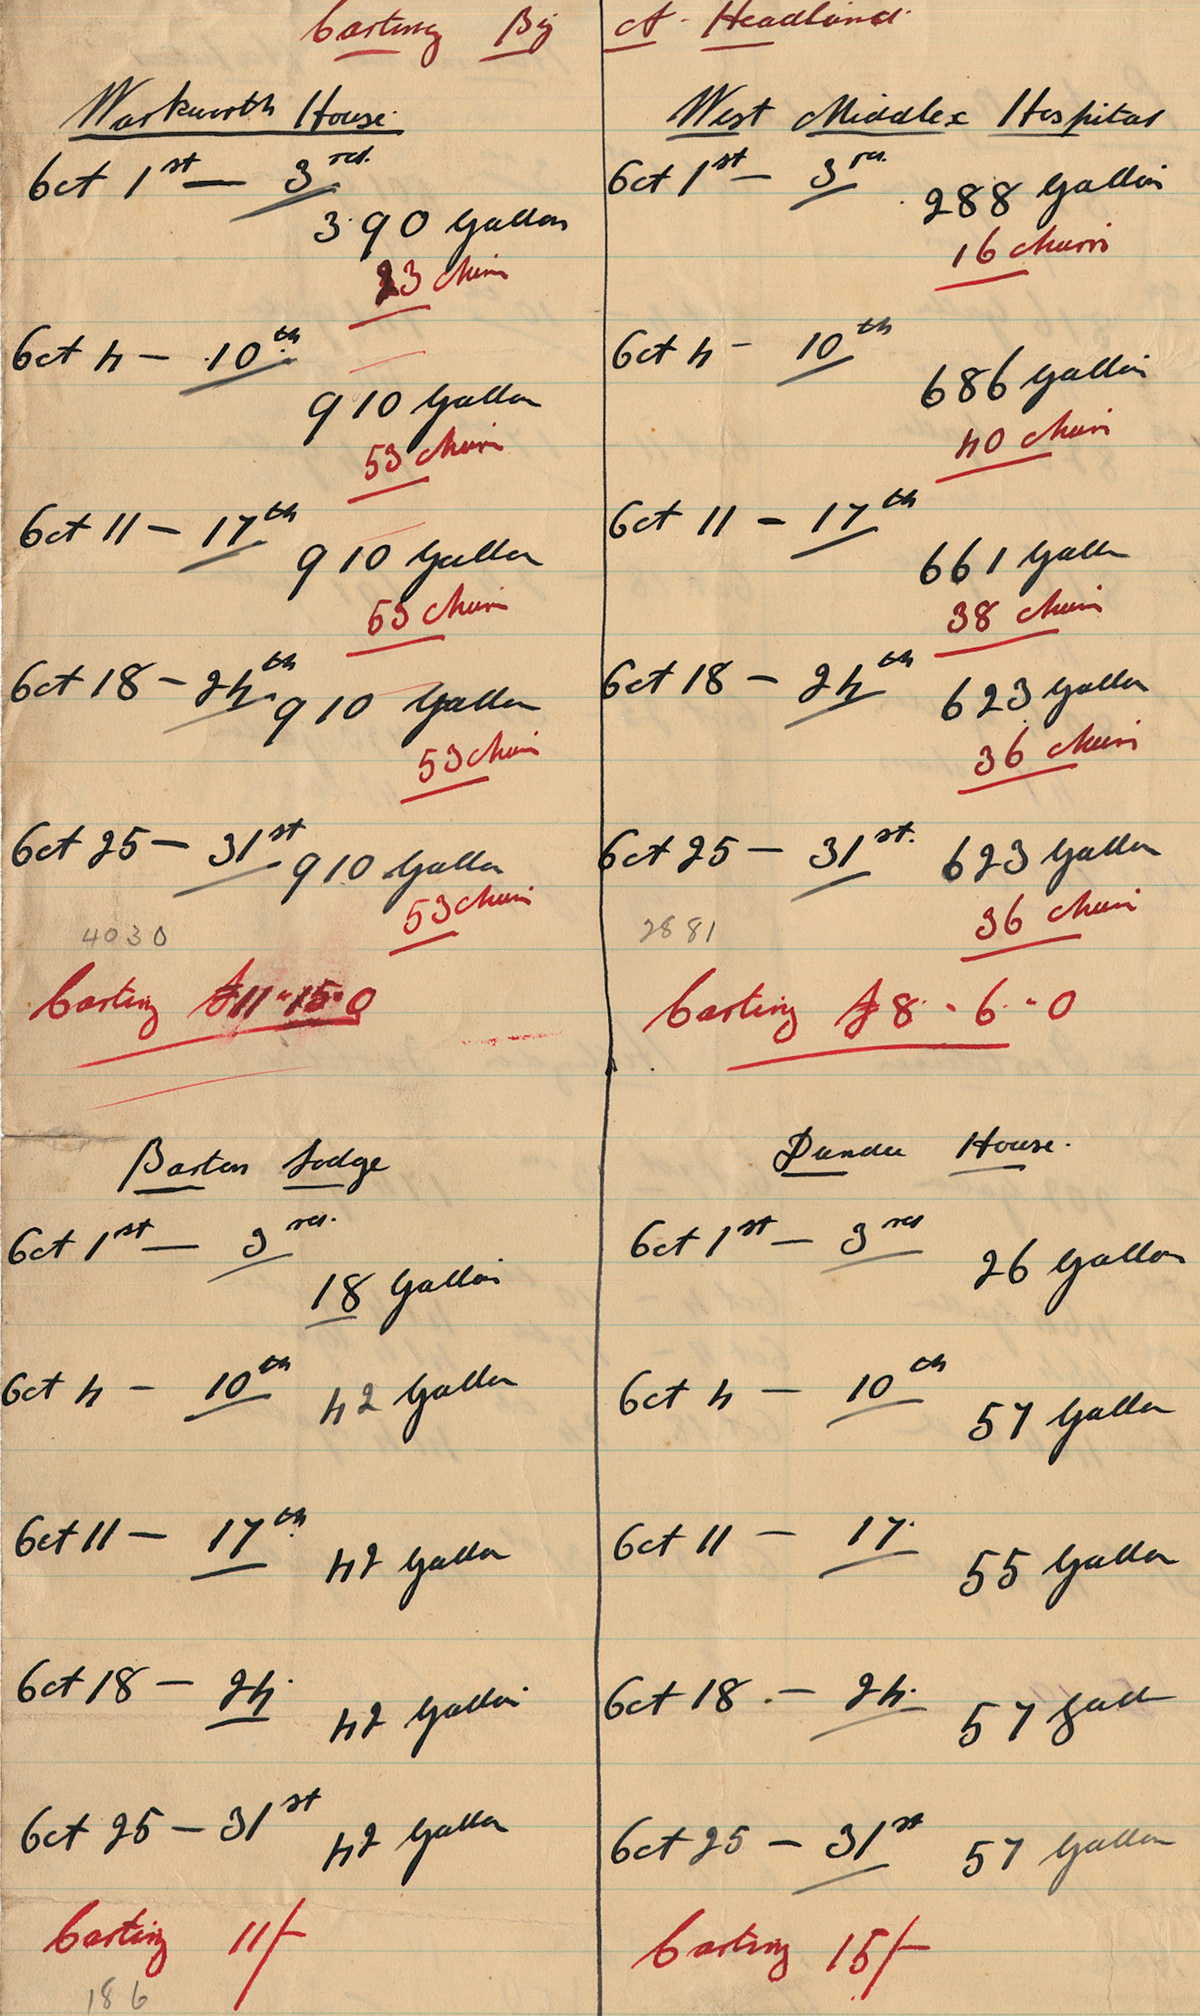 Carting By A. Headland.
Warkworth House.
Oct 1st — 3rd.
390 Gallon
23 churn
Oct 4 — 10th
910 Gallon
53 churn
Oct 11 — 17th
910 Gallon
53 churn
Oct 18 — 24th
910 Gallon
53 churn
Oct 25 — 31st
910 Gallon
53 churn
4030
Carting £11-15-0
West Middlex Hospital
Oct 1st — 3rd
288 Gallon
16 churn
Oct 4 — 10th
686 Gallon
40 churn
Oct 11 — 17th
661 Gallon
38 churn
Oct 18 — 24th
623 Gallon
36 churn
Oct 25 — 31st.
623 Gallon
36 churn
2881
Carting £8-6-0
Barton Lodge
Oct 1st — 3rd.
18 Gallon
Oct 4 — 10th
42 Gallon
Oct 11 — 17th
42 Gallon
Oct 18 — 24.
42 Gallon
Oct 25 — 31st
42 Gallon
Carting 11/-
186
Dundee House.
Oct 1st — 3rd
26 Gallon
Oct 4 — 10th
57 Gallon
Oct 11 — 17.
55 Gallon
Oct 18 — 24.
57 Gall
Oct 25 — 31st
57 Gallon
Carting 15/-